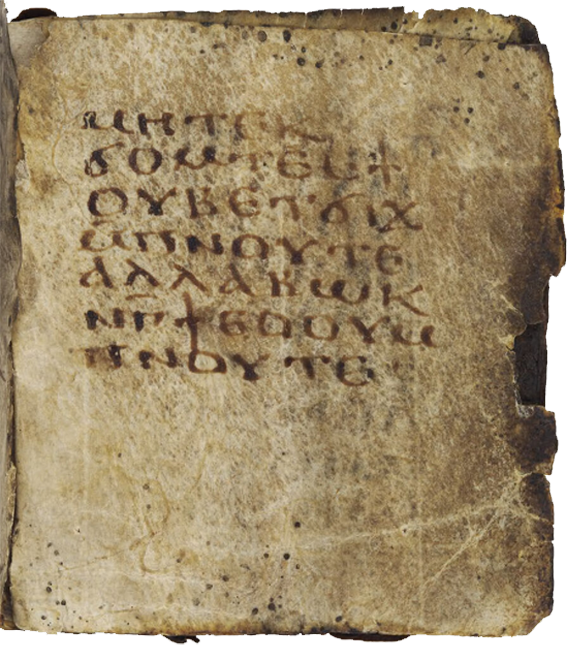 ⲙⲏⲧⲉⲕ
ϭⲟⲙⲧⲉⲉϯ
ⲟⲩⲃⲉⲧϭⲓϫ
ⲙⲡⲛⲟⲩⲧⲉ
ⲁⲗⲗⲁⲃⲱⲕ
ⲛⲅ̄ϯⲉⲟⲟⲩⲙ
ⲡⲛⲟⲩⲧⲉ